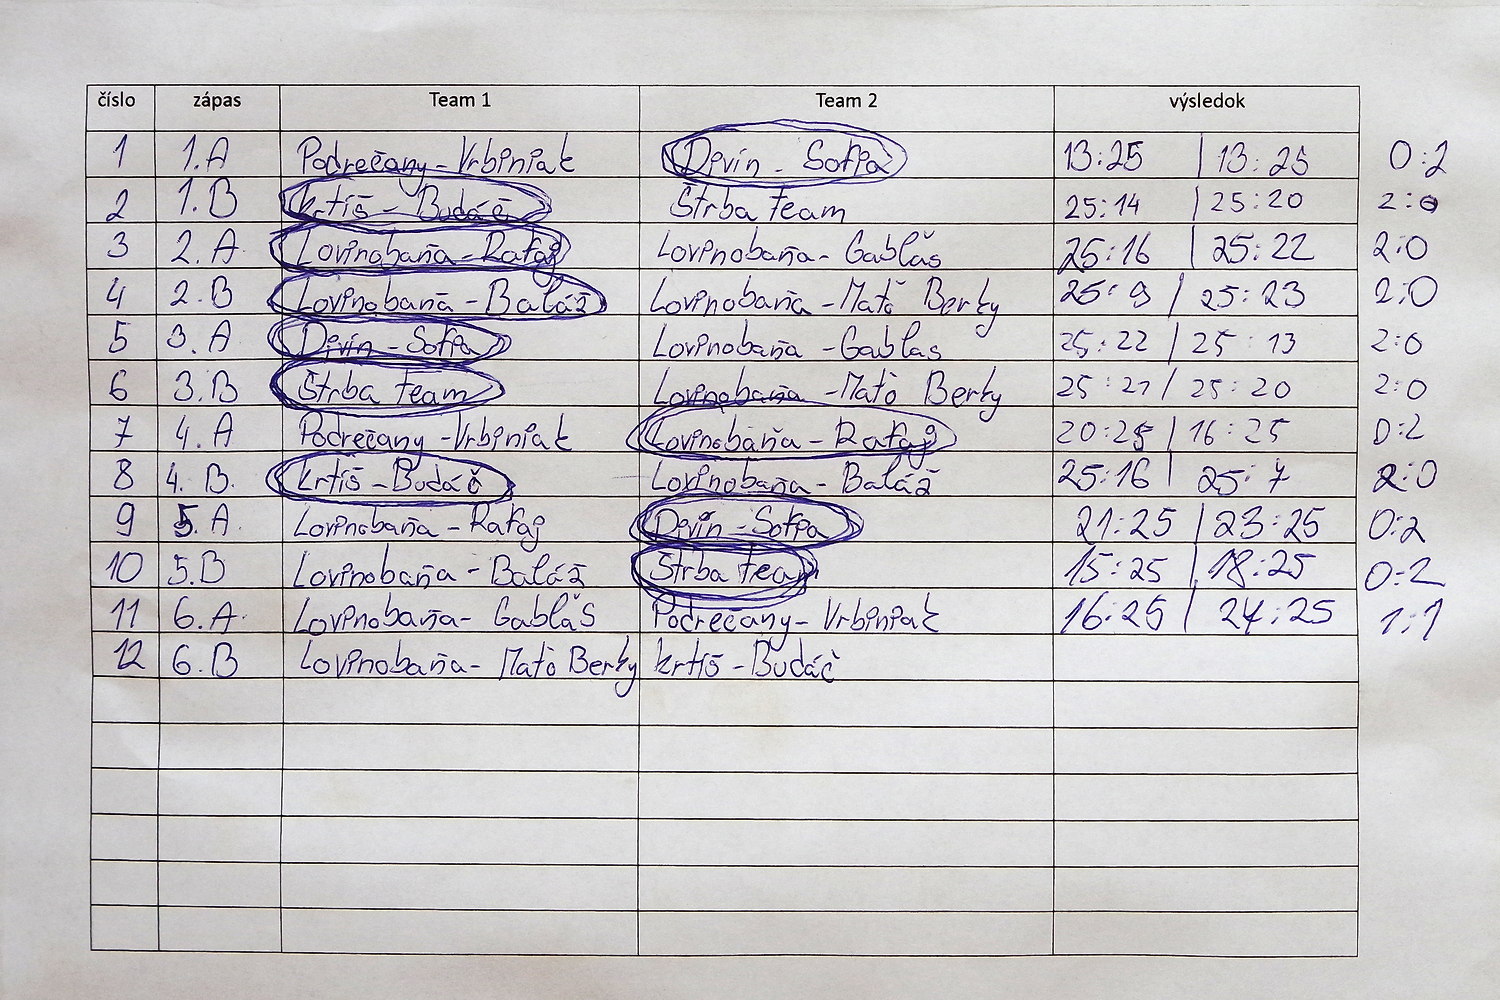 číslo zápas Team 1 Team 2 výsledok
1 1.A Podrečany-Vrbiniak Divín - Sofia 13:25 | 13:25 0:2
2 1.B Krtíš - Budáč Štrba team 25:14 | 25:20 2:0
3 2.A Lovinobaňa-Rafaj Lovinobaňa-Gablaš 25:16 | 25:22 2:0
4 2.B Lovinobaňa-Baláž Lovinobaňa-Maťo Berky 25:9 / 25:23 2:0
5 3.A Divín-Sofia Lovinobaňa-Gablas 25:22 / 25:13 2:0
6 3.B Štrba team Lovinobaňa-Maťo Berky 25:21 / 25:20 2:0
7 4.A Podrečany-Vrbiniak Lovinobaňa-Rafaj 20:25 | 16:25 0:2
8 4.B. Krtíš-Budáč Lovinobaňa-Baláž 25:16 | 25:7 2:0
9 5.A. Lovinobaňa-Rafaj Divín-Sofia 21:25 | 23:25 0:2
10 5.B Lovinobaňa-Baláž Štrba team 15:25 | 18:25 0:2
11 6.A. Lovinobaňa-Gablaš Podrečany-Vrbiniak 16:25 | 24:25 1:1
12 6.B Lovinobaňa-Maťo Berky Krtíš-Budáč